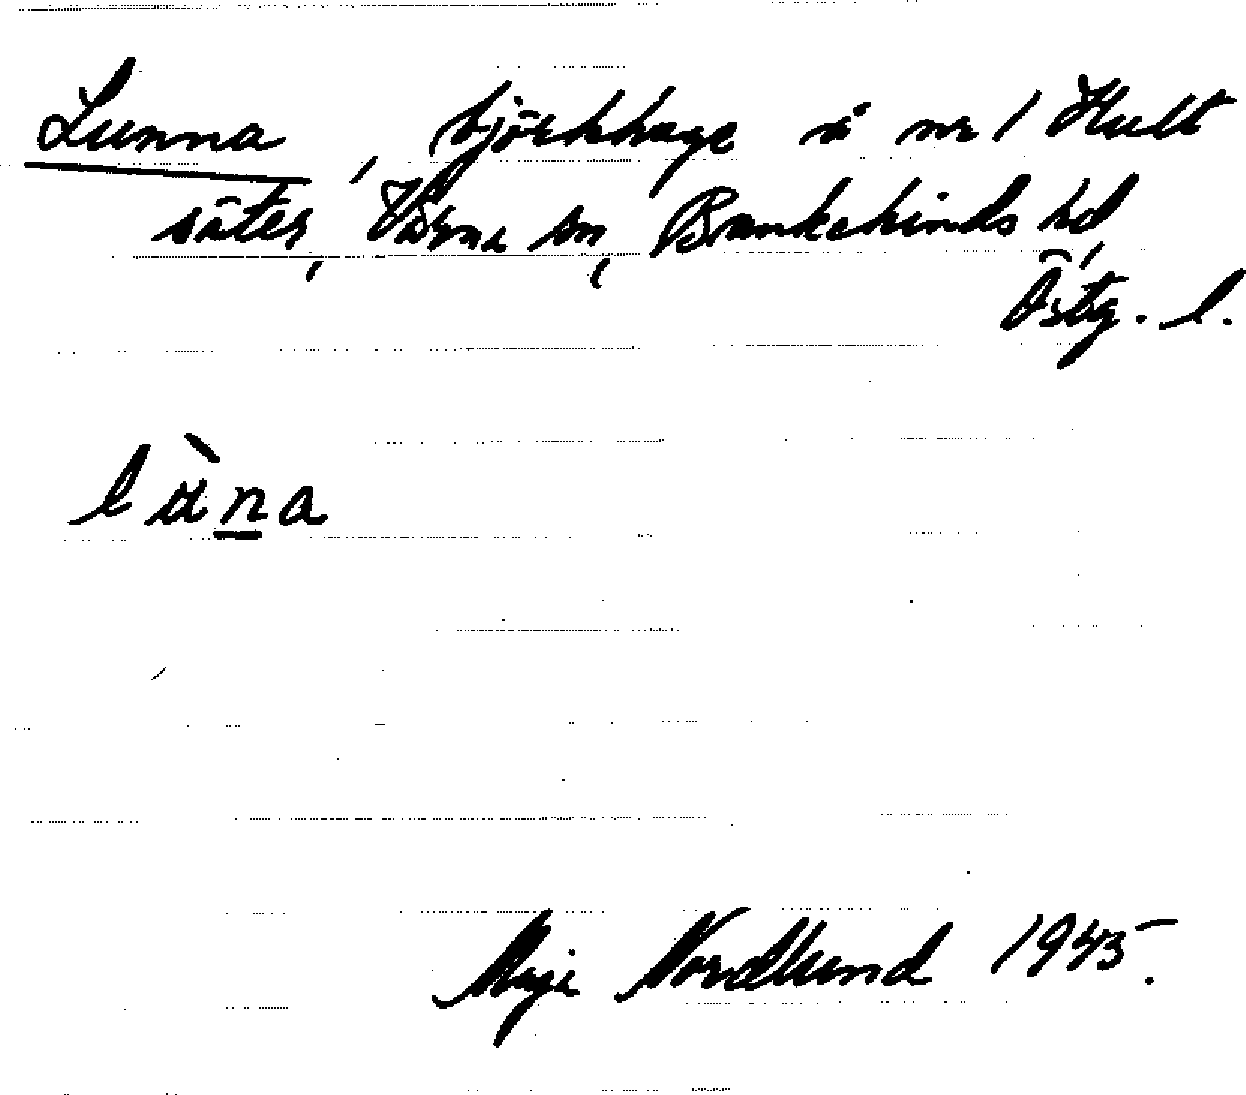 Lunna, björkhage å nr 1 Hult
säter, Värna sn, Bankekinds hd,
Östg. l.
lùna
Maja Nordlund 1945.